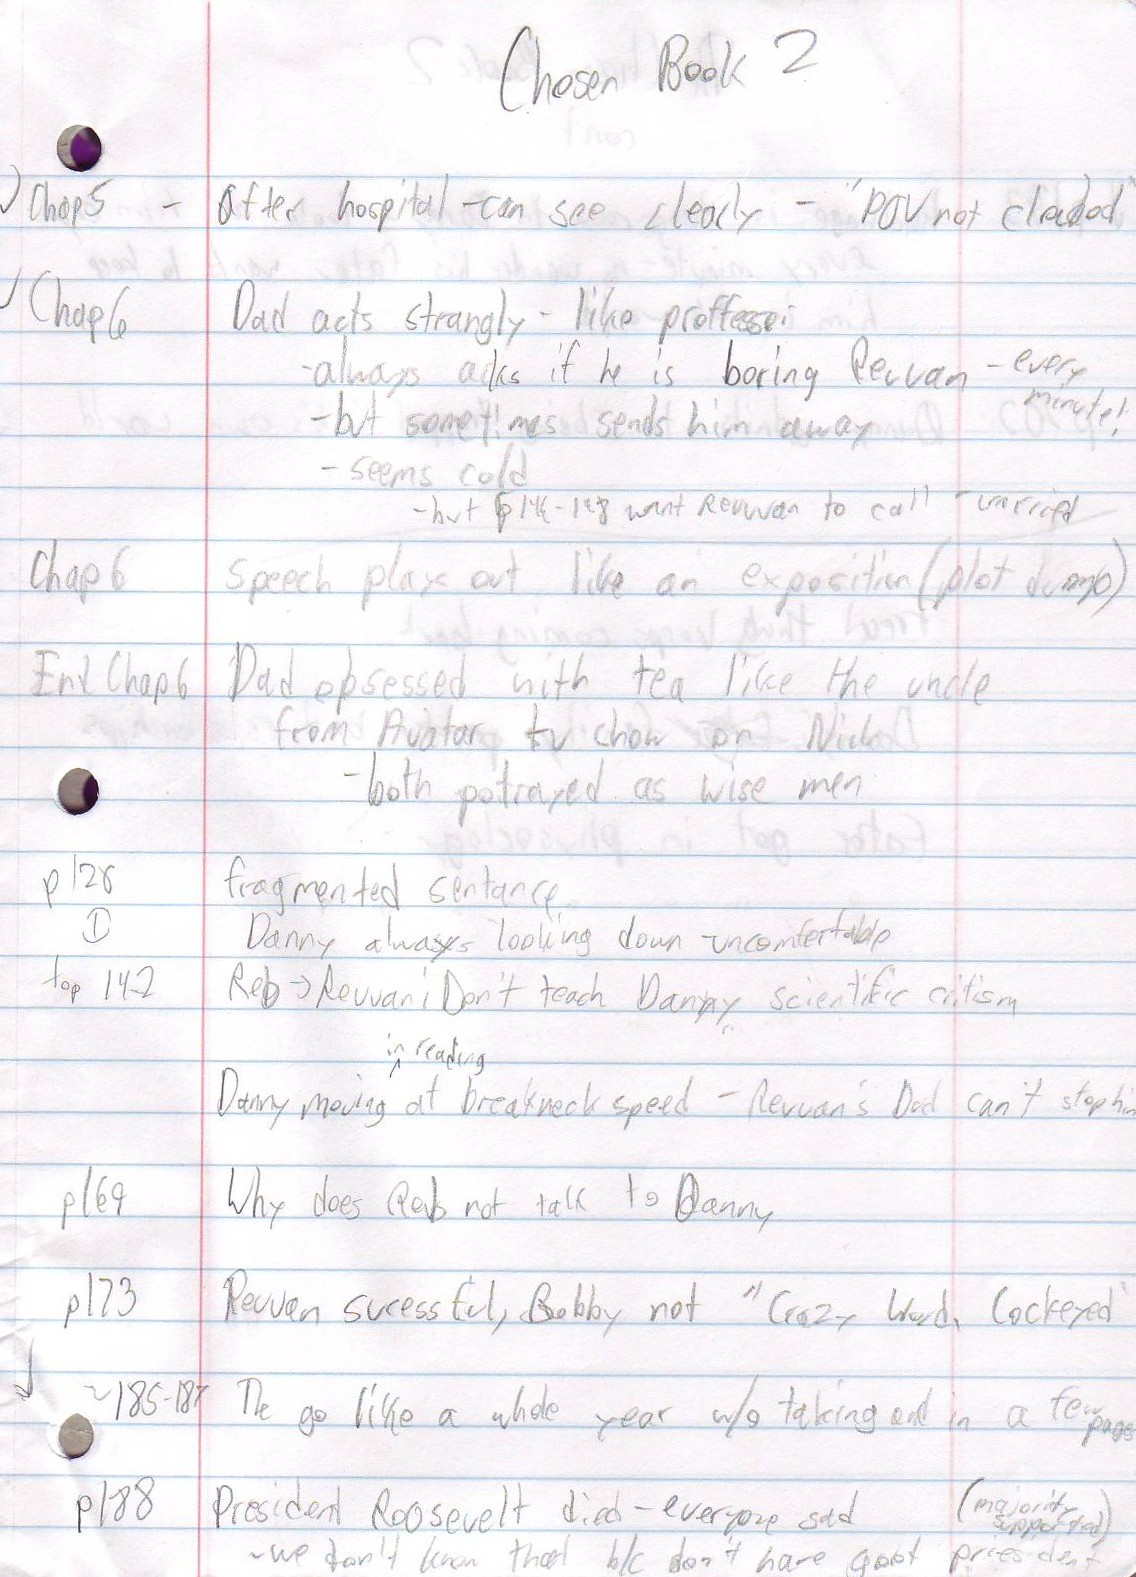 Chosen Book 2
Chap5 - After hospital -can see clearly - "POV not clouded"
Chap6 Dad acts strangly - like proffessor
-always asks if he is boring Reuvan - every minute!
-but sometimes sends him away
- seems cold
-but p 146-148 want Reuvan to call - worried
Chap6 Speech plays out like an exposition (plot dump)
End Chap6 Dad obsessed with tea like the uncle
from Avatar tv show on Nick
-both potrayed as wise men
p128 fragmented sentance
Danny always looking down -uncomfertable
top 142 Reb → Reuvan: Don't teach Danny scientific critism
in reading
Danny moving at breakneck speed - Reuvan's Dad can't stop him
p169 Why does Reb not talk to Danny
p173 Reuvan sucessful, Bobby not "Crazy World, Cockeyed"
~185-187 The go like a whole year w/o talking and in a few pages
p188 President Roosevelt died - everyone sad (majority supported)
-we don't know that b/c don't have good president